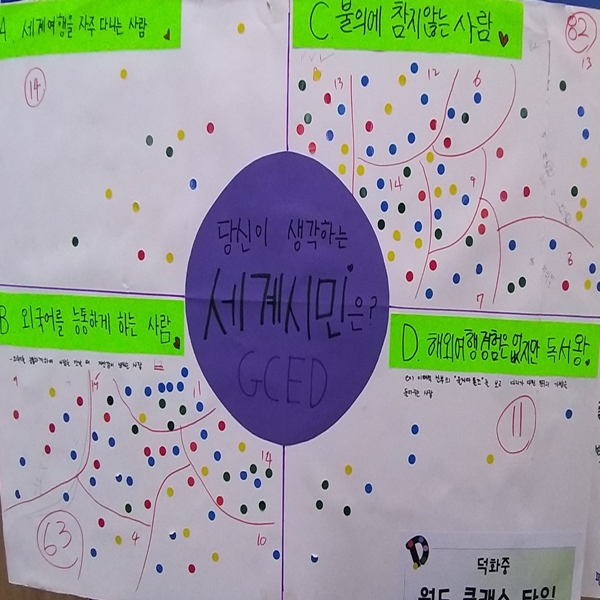 A. 세계여행을 자주 다니는 사람
14
C. 불의에 참지않는 사람
82
13
12
6
13
14
9
3
7
당신이 생각하는
세계시민은?
GCED
B 외국어를 능통하게 하는 사람
11
14
4
10
63
D. 해외여행경험은 없지만 독서왕
11
덕화중
월드 클래스 타임